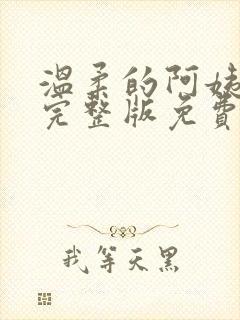 温柔的阿姨
完整版免费
我等天黑